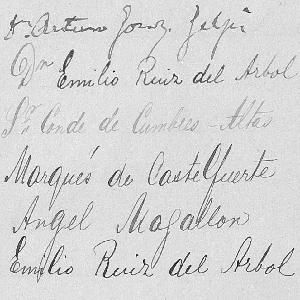 Dn Arturo Gonz.
Dn Emilio Ruiz del Arbol
Sr. Conde de Cumbres-Altas
Marqués de Castelfuerte
Angel Magallon
Emilio Ruiz del Arbol